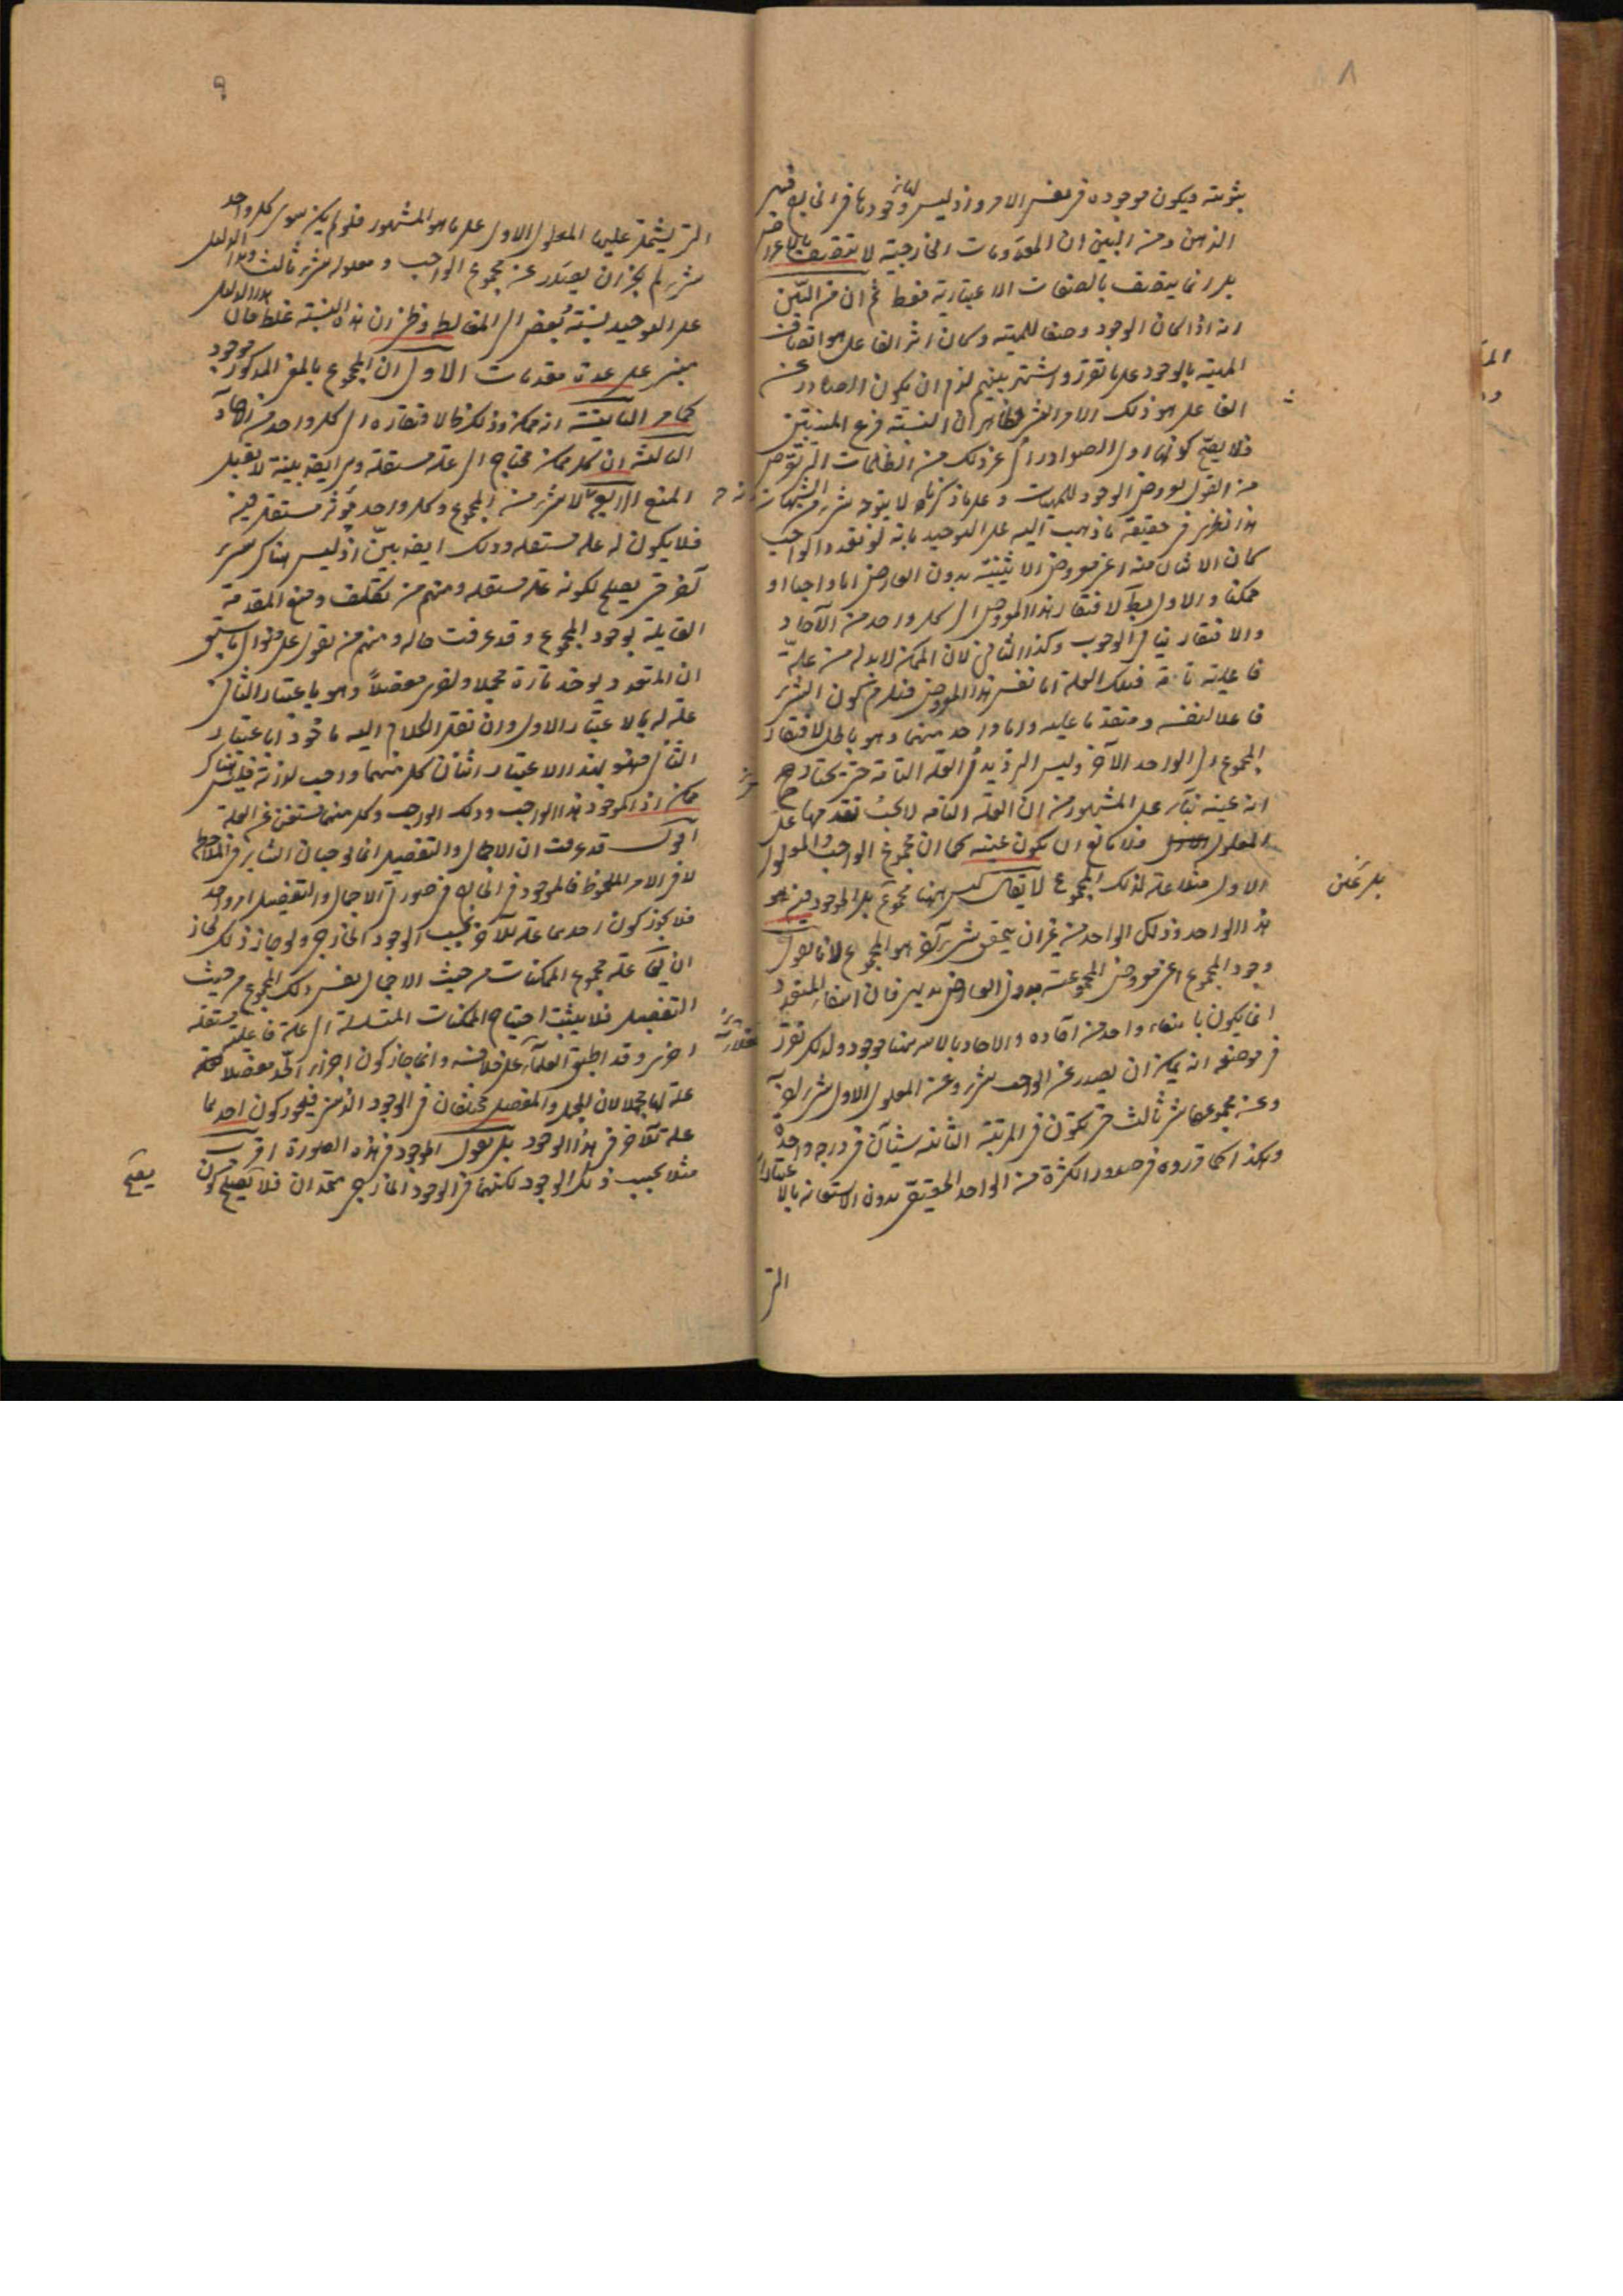 ٨
بثوبته ويكون موجوده فى نفس الامر واذ ليس وجودها فى الخارج فهى فى
الذهن ومن البين ان المعدومات الخارجية لا تتصف بالاعراض
بل انما يتصف بالصفات الاعتبارية فقط ثم ان من البين
انه اذا كان الوجود وصفا للمهية وكان اثر الفاعل هو اتصاف
المهية بالوجود على ما تقرر واشتهر بينهم لزم ان يكون الصادر عن
الفاعل هو ذلك الامر النسبى وظاهر ان النسبة فرع المنتسبين
فلا يصح كونها اول الصوادر الى غير ذلك من الظلمات التى تعرض
من القول بعروض الوجود للمهيات وعلى ما ذكرناه لا يتوجه شئ من الشبهات
هذا نظرى فى حقيقة ما ذهبت اليه على التوحيد بانه لو تعدد الواجب
كان الاثنان منه اعنى معروض الاثنينية بدون العارض اما واجبا او
ممكنا والاول بط لافتقار هذا المعروض الى كل واحد من الآحاد
والافتقار ينافى الوجوب وكذا الثانى لان الممكن لا بد له من علة
فاعلية تامة فتلك العلة اما نفس هذا المعروض فيلزم كون الشئ
فاعلا لنفسه ومتقدما عليه واما واحد منهما وهو باطل لافتقار
المجموع الى الواحد الآخر وليس الترديد فى العلة التامة حتى يختار
انه عينه بناء على المشهور من ان العلة التامة لا يجب تقدمها على
المعلول فلا مانع ان يكون عينه كما ان مجموع الواجب والمعلول
الاول مثلا علة لذلك المجموع لا يقال ليس ههنا مجموع بل الموجود منه هو
هذا الواحد وذلك الواحد من غير ان يتحقق شئ آخر هو المجموع لانا نقول
وجود المجموع اعنى معروض المجموعية بدون العارض بديهى فان انتفاء المتعدد
انما يكون بانتفاء واحد من آحاده والآحاد بالاسر ههنا موجود ولذلك تقرر
فى موضعه انه يمكن ان يصدر عن الواجب شئ وعن المعلول الاول شئ آخر
وعن مجموعهما شئ ثالث حتى يكون فى المرتبة الثانية شيئان فى درجة واحدة
وهكذا كما قرروه فى صدور الكثرة من الواحد الحقيقى بدون الاستعانة بالاعتبارات
التى
٩
التى يشتمل عليها المعلول الاول على ما هو المشهور فلو لم يكن سوى كل واحد
شئ لم يجز ان يصدر عن مجموع الواجب ومعلوله شئ ثالث وهذا الدليل
على التوحيد نسبته بعض الى المغالط وظنى ان هذه النسبة غلط فان
مبنى على عدة مقدمات الاول ان المجموع بالمعنى المذكور موجود
كما مر الثانية انه ممكن وذلك ظ لافتقاره الى كل واحد من الآحاد
الثالثة ان كل ممكن محتاج الى علة مستقلة وهى ايضا بينة لا تقبل
المنع الرابع لا شئ من المجموع وكل واحد مؤثر مستقل فيه
فلا يكون له علة مستقله وذلك ايضا بين اذ ليس هناك شئ
آخر حتى يصلح لكونه علة مستقله ومنهم من تكلف ومنع المقدمة
القايلة بوجود المجموع وقد عرفت حاله ومنهم من يقول على منوال ما سبق
ان المتعدد يوخذ تارة مجملا واخرى مفصلاً وهو باعتبار الثانى
علة له بالاعتبار الاول وان نقل الكلام اليه ماخوذا باعتبار
الثانى فهو بهذا الاعتبار اثنان كل منهما واجب لذاته فليس هناك
ممكن اذ الموجود هذا الواجب وذلك الواجب وكل منهما مستغن عن العلة
اقول قد عرفت ان الاجمال والتفصيل انما يوجبان التغاير فى الملاحظة
لا فى الامر الملحوظ فالموجود فى الخارج فى صورتى الاجمال والتفصيل امر واحد
فلا يجوز كون احدهما علة للآخر بحسب الوجود الخارجى ولو جاز ذلك لجاز
ان يكون علة مجموع الممكنات من حيث الاجمال نفس ذلك المجموع من حيث
التفصيل فلا يثبت احتياج الممكنات المتسلسلة الى علة فاعلية مستقلة
اخرى وقد اطبق العلماء على خلافه وانما جاز كون اجزاء الحد مفصلا
علة لها مجملا لان المجمل والمفصل مختلفان فى الوجود الذهنى فيجوز كون احدهما
علة للآخر فى هذا الوجود بل نقول الموجود فى هذه الصورة
مثلا بحسب ذلك الوجود لكنهما فى الوجود الخارجى متحدان فلا يصلح كون